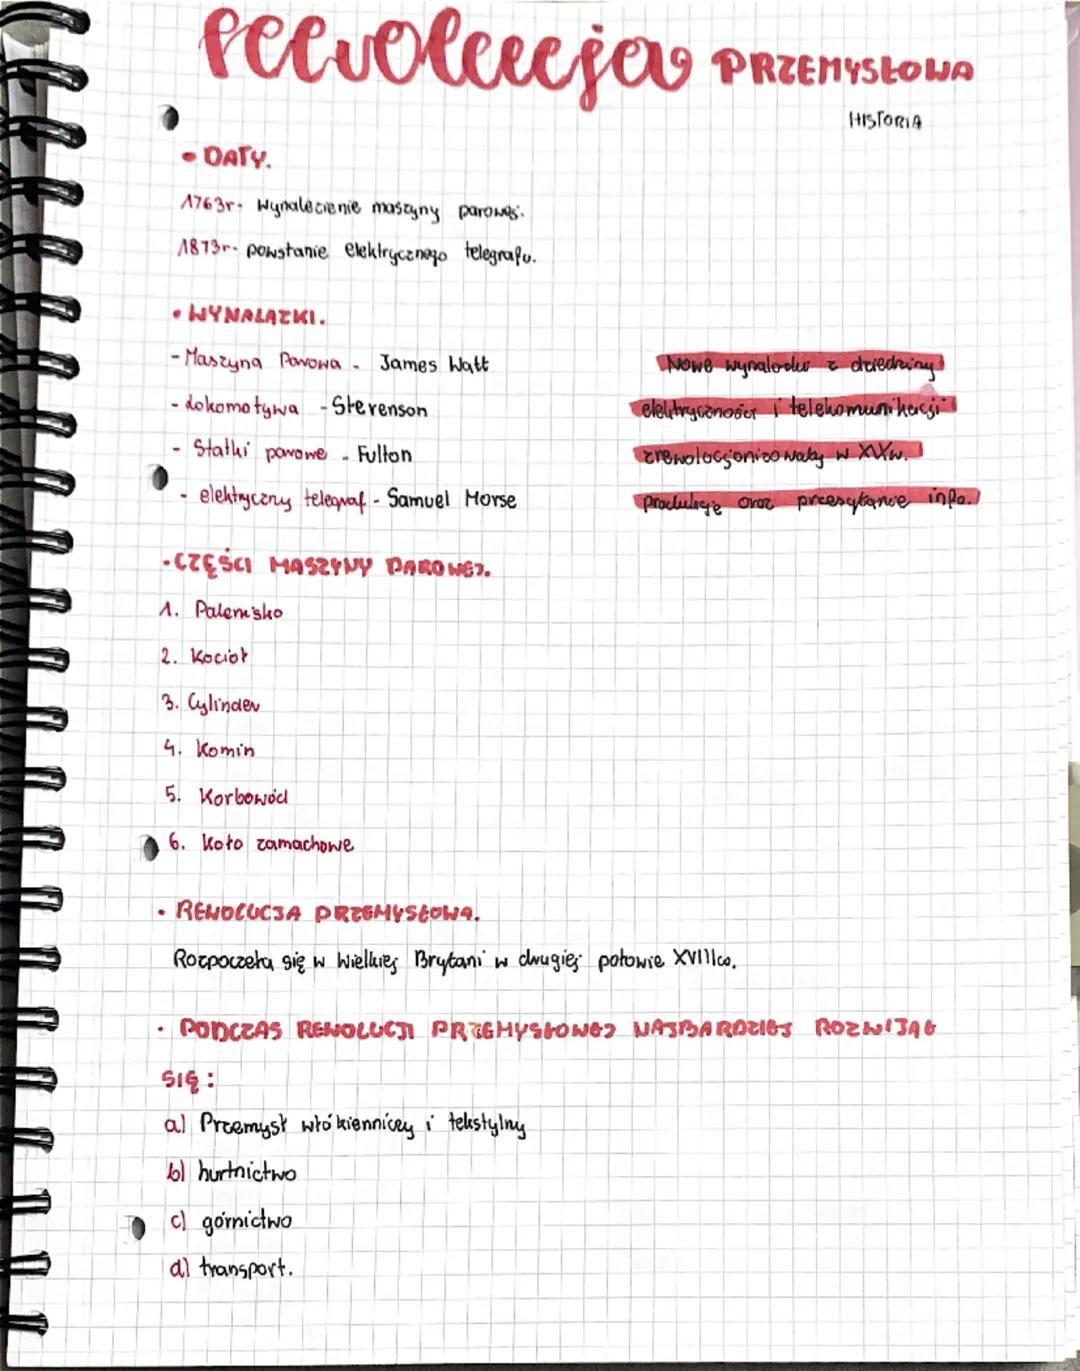 Rewolucja PRZEMYSŁOWA
HISTORIA
• DATY.
1763r- wynalezienie maszyny parowej.
1873r- powstanie elektrycznego telegrafu.
• WYNALAZKI.
- Maszyna Parowa - James Watt
- Lokomotywa - Stevenson
- Statki parowe - Fulton
- elektryczny telegraf - Samuel Morse
Nowe wynalazki z dziedziny
elektryczności i telekomunikacji
zrewolucjonizowały w XIXw.
produkcję oraz przesyłanie info.
• CZĘŚCI MASZYNY PAROWEJ.
1. Palenisko
2. Kocioł
3. Cylinder
4. Komin
5. Korbowód
6. Koło zamachowe
• REWOLUCJA PRZEMYSŁOWA.
Rozpoczeła się w Wielkiej Brytani w drugiej połowie XVIIIw.
• PODCZAS REWOLUCJI PRZEMYSŁOWEJ NAJBARDZIEJ ROZWIJAŁ
SIĘ:
a) Przemysł włókienniczy i tekstylny
b) hurtnictwo
c) górnictwo
d) transport.